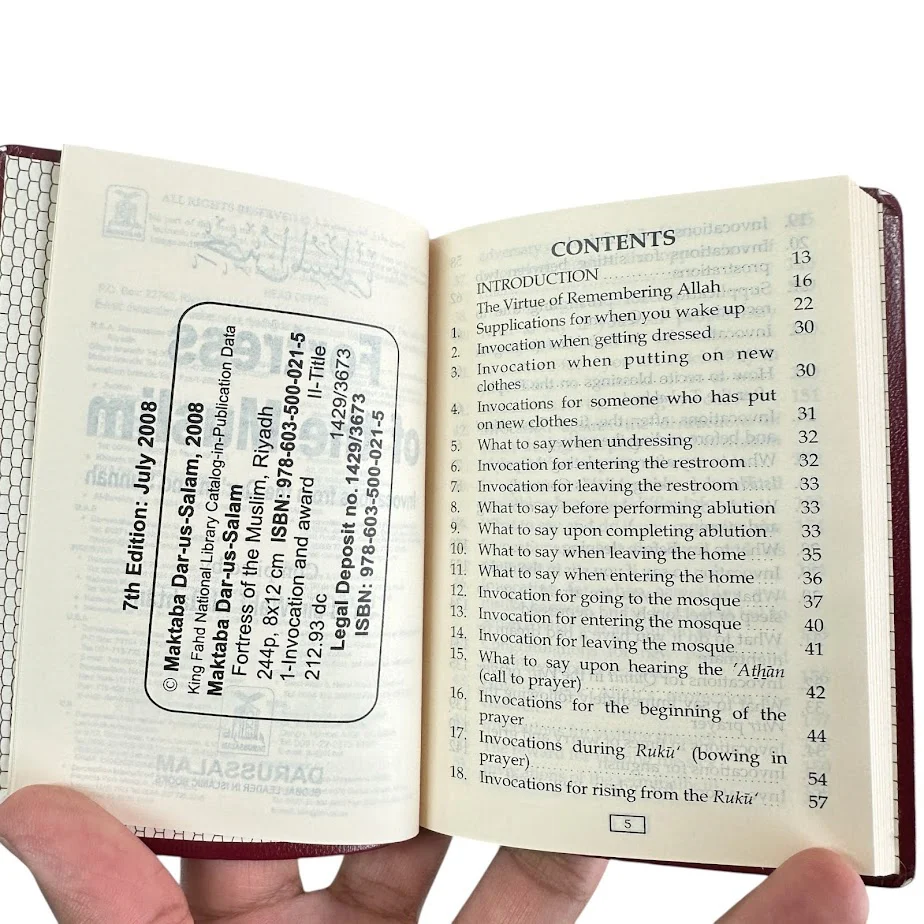 7th Edition: July 2008
© Maktaba Dar-us-Salam, 2008
King Fahd National Library Catalog-in-Publication Data
Maktaba Dar-us-Salam
Fortress of the Muslim, Riyadh
244p, 8x12 cm ISBN: 978-603-500-021-5
1-Invocation and award II-Title
212.93 dc 1429/3673
Legal Deposit no. 1429/3673
ISBN: 978-603-500-021-5
CONTENTS
INTRODUCTION 13
The Virtue of Remembering Allah 16
1. Supplications for when you wake up 22
2. Invocation when getting dressed 30
3. Invocation when putting on new
clothes 30
4. Invocations for someone who has put
on new clothes 31
5. What to say when undressing 32
6. Invocation for entering the restroom 32
7. Invocation for leaving the restroom 33
8. What to say before performing ablution 33
9. What to say upon completing ablution 33
10. What to say when leaving the home 35
11. What to say when entering the home 36
12. Invocation for going to the mosque 37
13. Invocation for entering the mosque 40
14. Invocation for leaving the mosque 41
15. What to say upon hearing the 'Aṯẖān
(call to prayer) 42
16. Invocations for the beginning of the
prayer 44
17. Invocations during Rukū‘ (bowing in
prayer) 54
18. Invocations for rising from the Rukū‘ 57
5